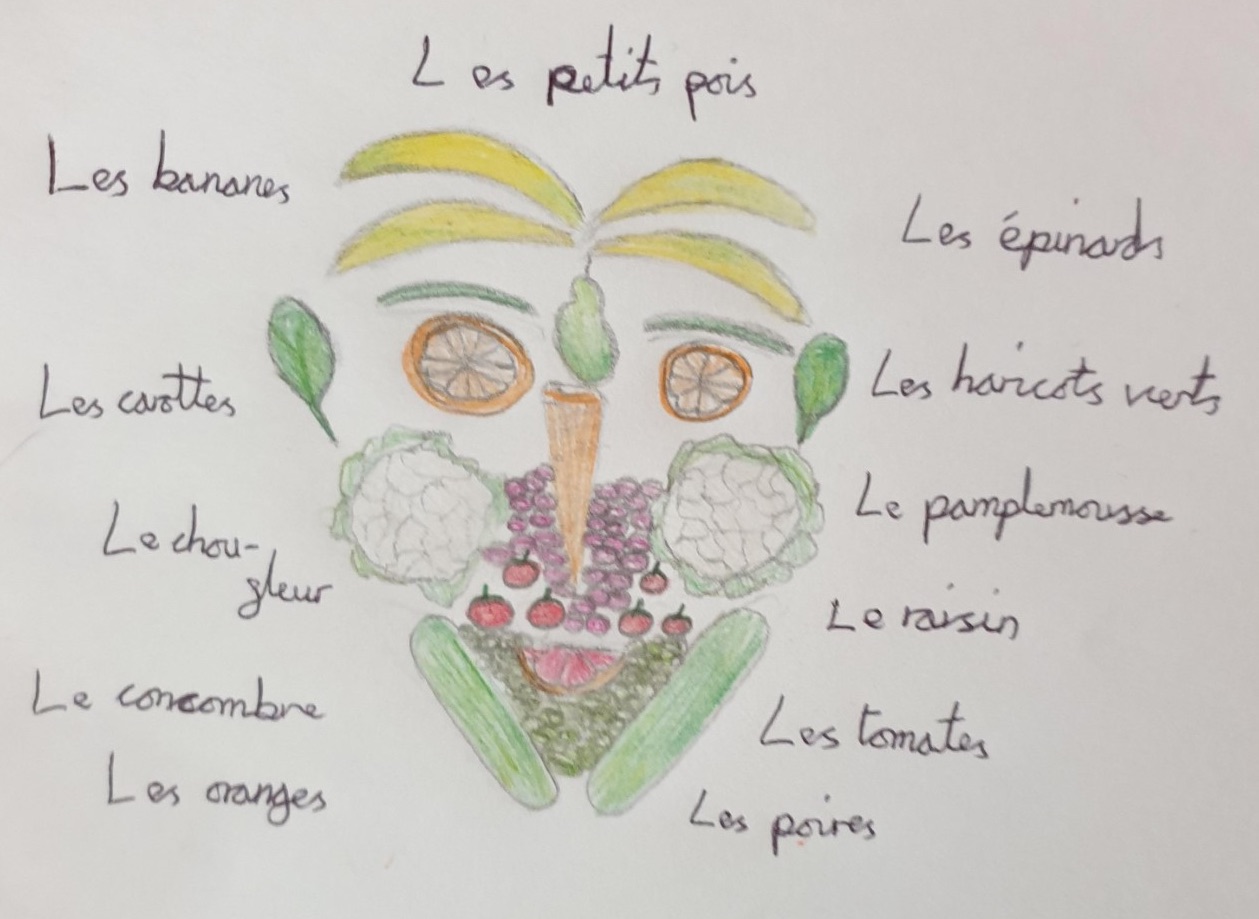 Les petits pois
Les bananes
Les épinards
Les carottes
Les haricots verts
Le chou-
fleur
Le pamplemousse
Le raisin
Le concombre
Les tomates
Les oranges
Les poires